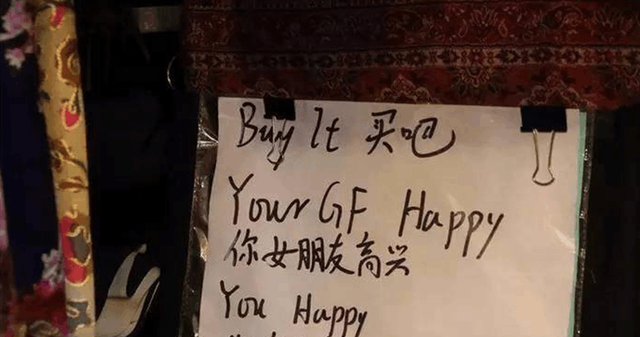 Buy It 买吧
Your GF Happy
你女朋友高兴
You Happy